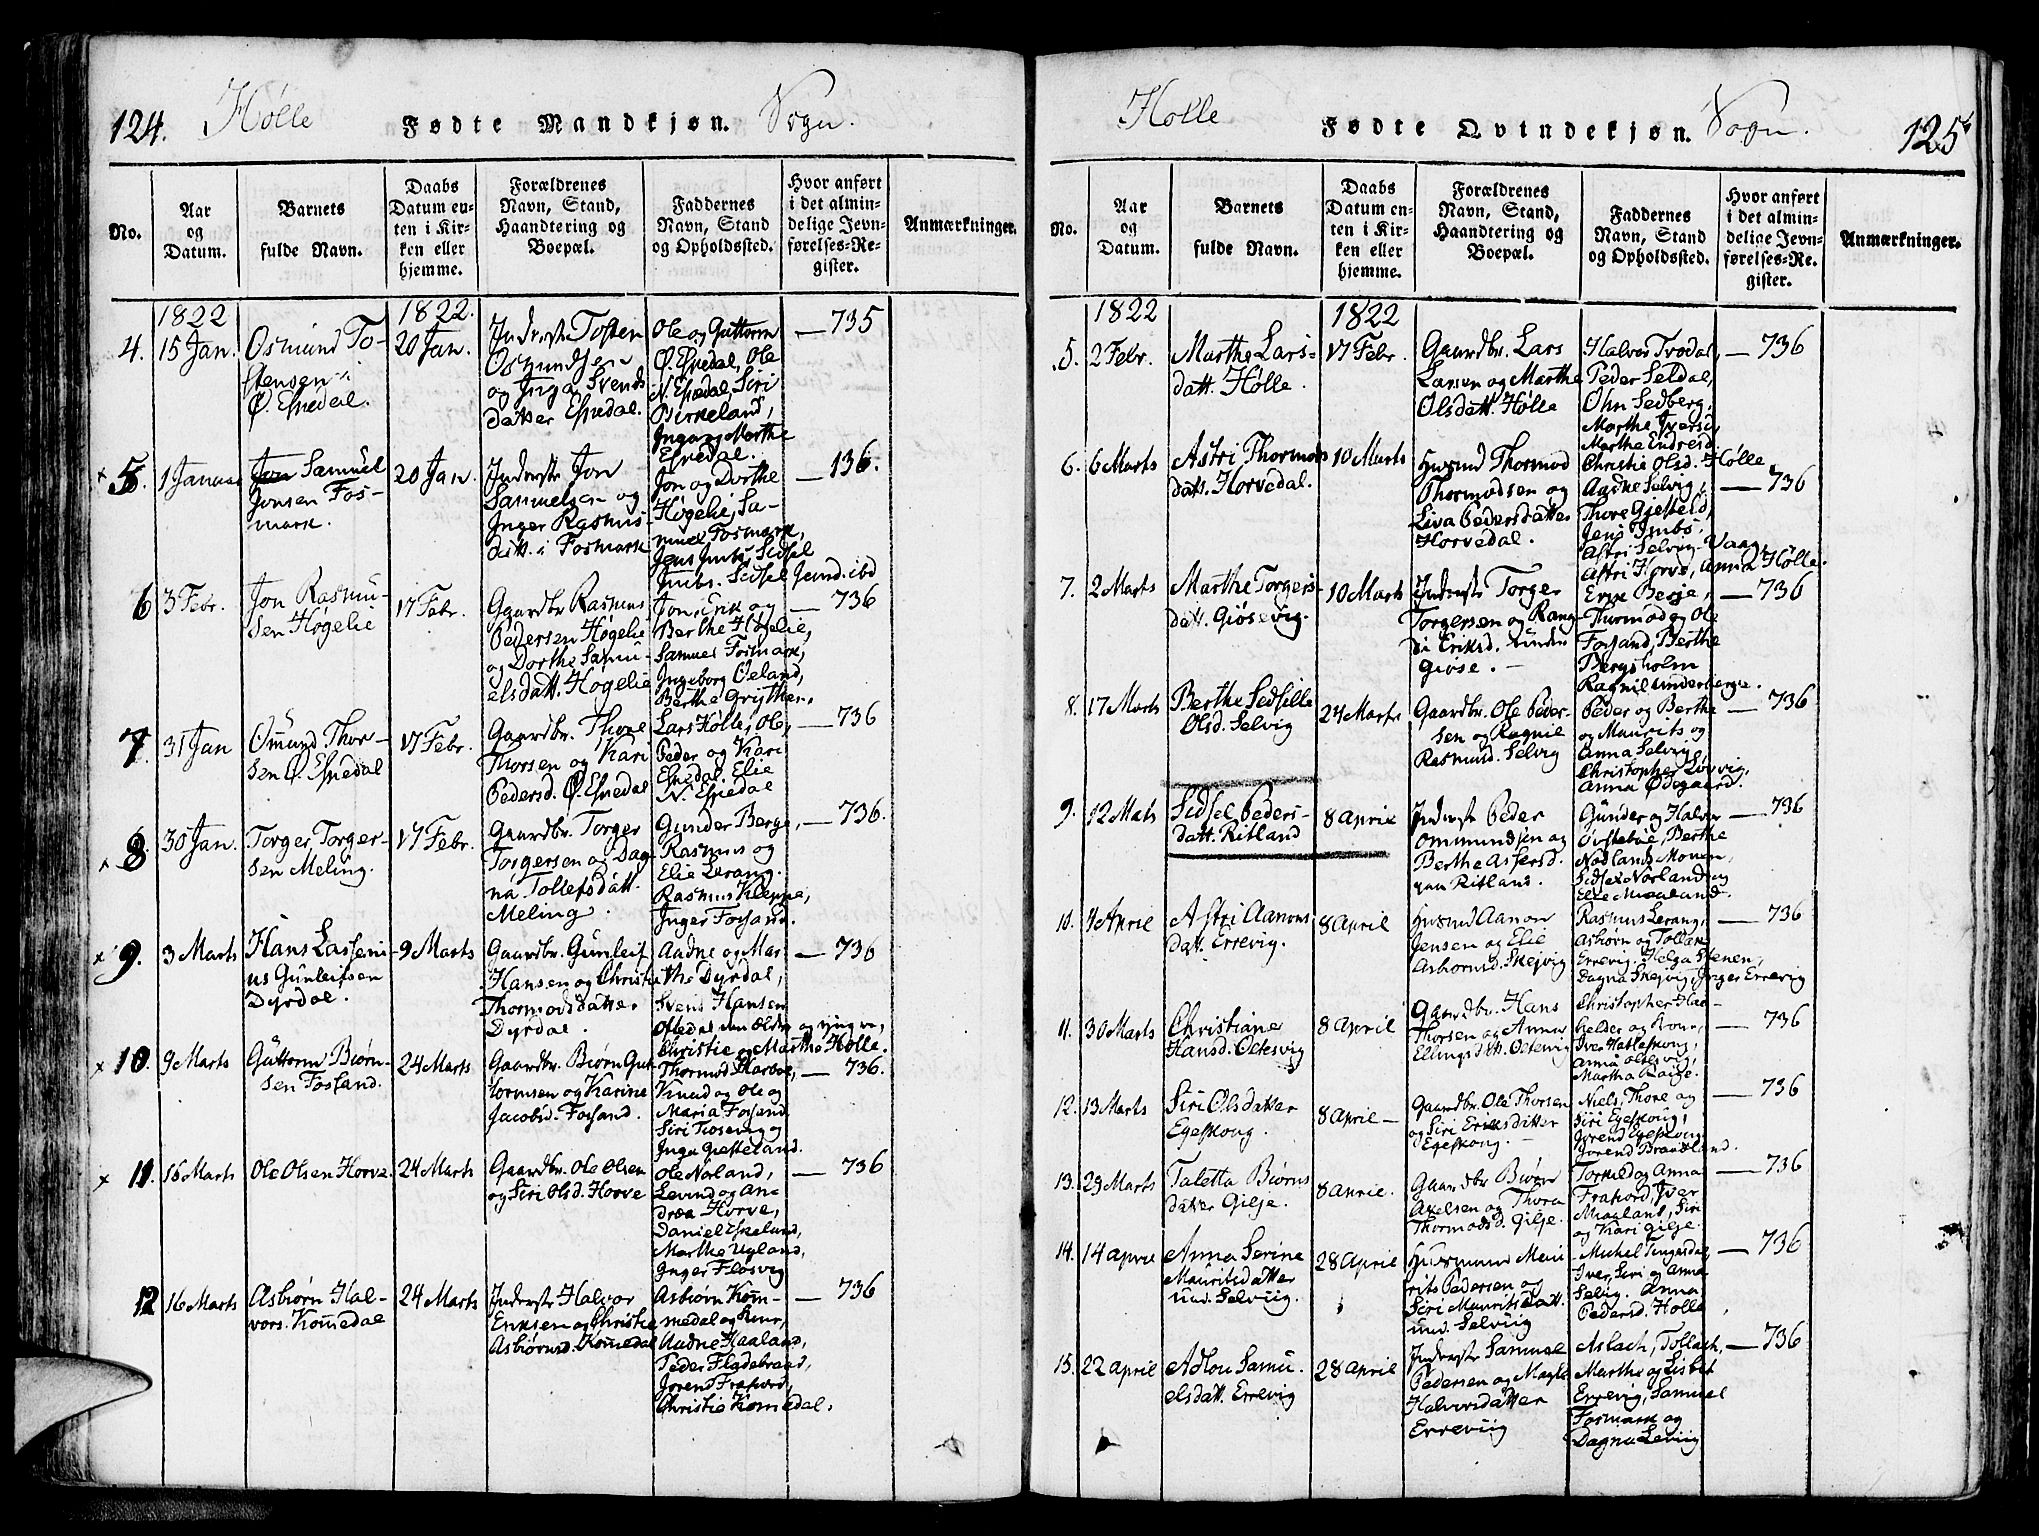 124. Hølle Fødte Mandkjøn. Sogn.
No.
Aar
og
Datum.
Barnets
fulde Navn.
Daabs
Datum en-
ten i Kir-
ken eller
hjemme.
Forældrenes
Navn, Stand,
Haandtering og
Boepæl.
Faddernes
Navn, Stand
og Opholdssted.
Hvor anført
i det almin-
delige Jevn-
førelses-Re-
gister.
Anmærkninger.
1822
4. 15 Jan.
Osmund To-
stensen i
Ø. Espedal.
1822.
20 Jan.
Inderste Tosten
Osmundsen
og Inga Svends
datter Espedal.
Ole og Guttorm
Ø. Espedal, Ole
N. Espedal, Siri
Birkeland,
Inga og Marthe
Espedal.
— 735
× 5. 1 Januar
Jon Samuel
Jonsen Fos-
mark.
20 Jan.
Inderste Jon
Samuelsen og
Inger Rasmus-
datt. i Fosmark
Jon og Dorthe
Høgelie, Sa-
muel Fosmark,
Jens Imbs, Sidsel
Imbs. Sidsel Jensd. ibd
— 136.
6 3 Febr.
Jon Rasmu-
sen Høgelie
17 Febr.
Gaardbr. Rasmus
Pedersen Høgelie
og Dorthe Samu-
elsdatt. Høgelie
Jon, Erik og
Berthe Høgelie,
Samuel Fosmark,
Ingeborg Øeland,
— 736
7. 31 Jan
Omund Thor-
sen Ø. Espedal
17 Febr.
Gaardbr. Thore
Thorsen og Kari
Pedersd. Ø. Espedal
Lars Hølle, Ole,
Peder og Kari
Espedal. Elie
N. Espedal
— 736
× 8 30 Jan.
Torger Torger-
sen Meling.
17 Febr.
Gaardbr. Torger
Torgersen og Dag-
na Tollefsdatt.
Meling.
Gunder Berge,
Rasmus og
Elie Lerang.
Rasmus Kleppe,
Inger Fossand.
— 736.
× 9. 3 Marts
Hans Lasseni-
us Gunleifsen
Dyrdal.
9 Marts
Gaardbr. Gunleif
Hansen og Christie
Thormodsdatter
Dyrdal.
Aadne og Mar-
the Dyrdal,
Svend Hansen
Oftedal den Eldre og yngre,
Christie og Marthe Hølle.
— 736
× 10. 9 Marts
Guttorm Biørn-
sen Fossand.
24 Marts
Gaardbr. Biørn Gut-
tormsen og Karine
Jacobsd. Forsand.
Thormod Harboe,
Knud og Ole og
Maria Forsand
Siri Tiosevig og
Inga Gietteland.
— 736.
× 11. 16 Marts
Ole Olsen Horve.
24 Marts
Gaardbr. Ole Olsen
og Siri Olsd. Horve
Ole Noland,
Levind og An-
drea Horve,
Daniel Eskeland,
Marthe Ugland,
Inger Fløsvig
— 736
12 16 Marts
Asbiørn Hal-
vors. Kommedal
24 Marts
Inderste Halvor
Eriksen og Christie
Asbiørnsd. Kommedal
Asbiørn Kom-
medal og Knu,
Aadne Haaland,
Peder Fladebraad,
Jorend Frafiord,
Christie Kommedal.
— 736
Holle Fødte Qvindekjøn. Sogn. 125
No.
Aar
og
Datum.
Barnets
fulde Navn.
Daabs
Datum en-
ten i Kir-
ken eller
hjemme.
Forældrenes
Navn, Stand,
Haandtering og
Boepæl.
Faddernes
Navn, Stand
og Opholdssted.
Hvor anført
i det almin-
delige Jevn-
førelses-Re-
gister.
Anmærkninger.
1822
5. 2 Febr.
Marthe Lars-
datt. Hølle.
1822
17 Febr.
Gaardbr. Lars
Larsen og Marthe
Olsdatt. Hølle
Halvor Trodal,
Peder Seldal,
Ohn Sedberg,
Marthe Iversd,
Marthe Endresd.
Christie Olsd. Hølle
— 736
6. 6 Marts
Astri Thormods
datt. Horvedal.
10 Marts
Husmd Thormod
Thormodsen og
Liva Pedersdatter
Horvedal.
Aadne Selvig,
Thore Gjetteld,
Jens Imbs,
Astri Selvig Vaag,
Astri Horve, Anna Hølle.
— 736
7. 2 Marts
Marthe Torgers-
datt. Giøsevig.
10 Marts
Inderste Torger
Torgersen og Rang-
di Eriksd. under
Giøse.
Erik Berge,
Thormod og Ole
Forsand, Berthe
Bergsholm
Ragnil underberge.
— 736
8. 17 Marts
Berthe Sedselle
Olsd. Selvig
24 Marts
Gaardbr. Ole Peder-
sen og Ragnil
Rasmusd. Selvig
Peder og Berthe
og Maurits og
Anna Selvig
Christopher Løvvig,
Anna Ødegaard.
— 736
9. 12 Mats
Sedsel Peders-
datt. Ritland
8 April
Inderste Peder
Ommundsen og
Berthe Assersd.
paa Ritland.
Gunder og Halvor
Øvstebøe, Berthe
Nodland Monen,
Sidsel Norland og
Elie Maaland.
— 736
10. 1 April
Astri Aanons
datt. Errevig.
8 April
Husmd Aanon
Jensen og Elie
Asbornsd. Skejvig
Rasmus Lerang,
Asbiørn og Tollak
Errevig. Helga Stenen,
Dagna Skejvig, Inger Errevig
— 736
11. 30 Marts
Christiane
Hansd. Oltesvig
8 April
Gaardbr. Hans
Thorsen og Anna
Ellingsdatt. Oltesvig
Christopher Hae-
helder og Kone,
Iver Hatleskong,
Anna Oltesvig,
Martha Raige.
— 736
12. 13 Marts
Siri Olsdatter
Egeskong.
8 April —
Gaardbr. Ole Thorsen
og Siri Eriksdatter
Egeskong.
Niels, Thore og
Siri Egeskong,
Jorend Egeskong
Jorend Brandland.
— 736
13. 29 Marts
Taletta Biørns
datter Gilje.
8 April.
Gaardbr Biørn
Axelsen og Thora
Thormodsd. Gilje.
Torkild og Anna
Frafiord, Iver
Maaland, Siri
og Kari Gilje.
— 736
14. 14 april
Anna Serine
Mauritsdatter
und. Selvuig.
28 April
Husmand Mau-
rits Pedersen og
Siri Mauritsdatt.
und. Selvuig
Michel Tengesdal,
Iver, Siri og Anna
Selvig. Anna
Pedersd. Holle
— 736
15. 22 april
Adlou Samu-
elsdatt. Errevig
28 April
Inderste Samuel
Pedersen og Magle
Halvorsdatter
Errevuig
Aslach, Tollach,
Marthe og Lisbet
Errevig, Samuel
Fosmark og
Dagna Leviig
— 736